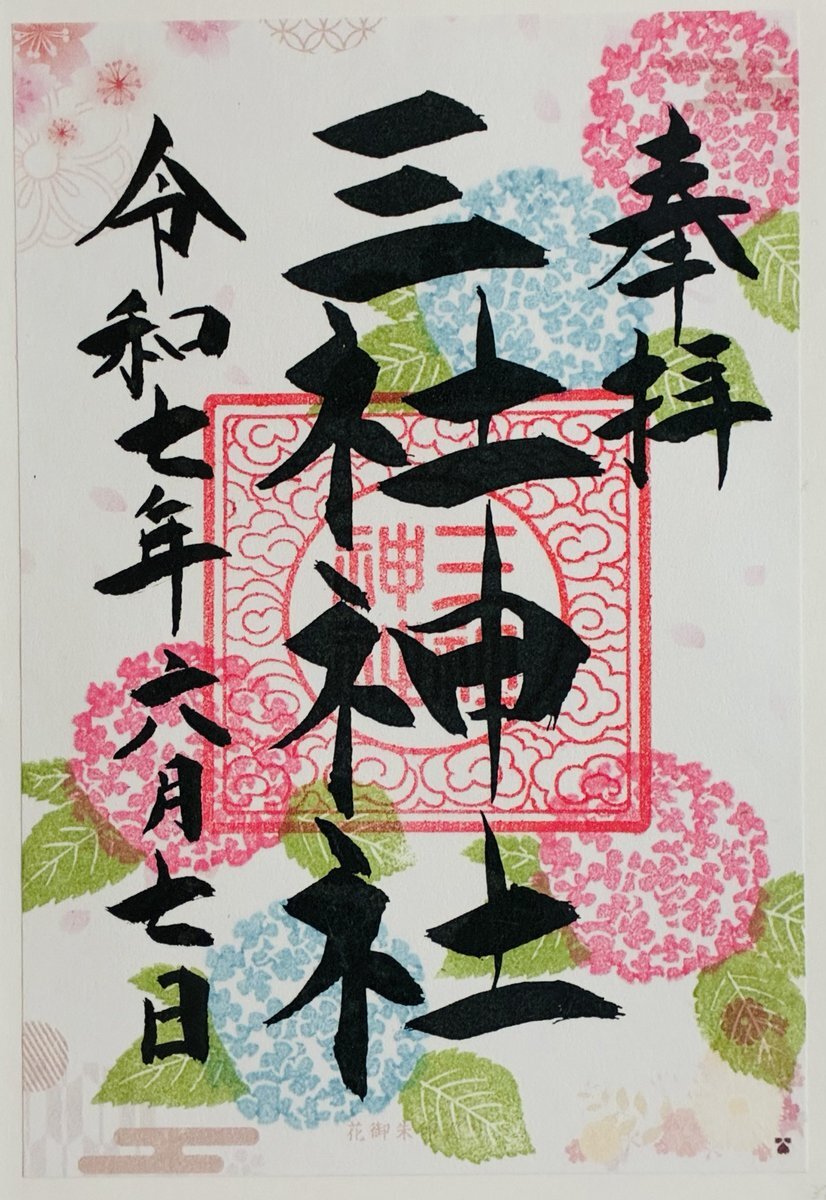 奉拝
三社神社
令和七年六月七日
三社
神社
花御朱印